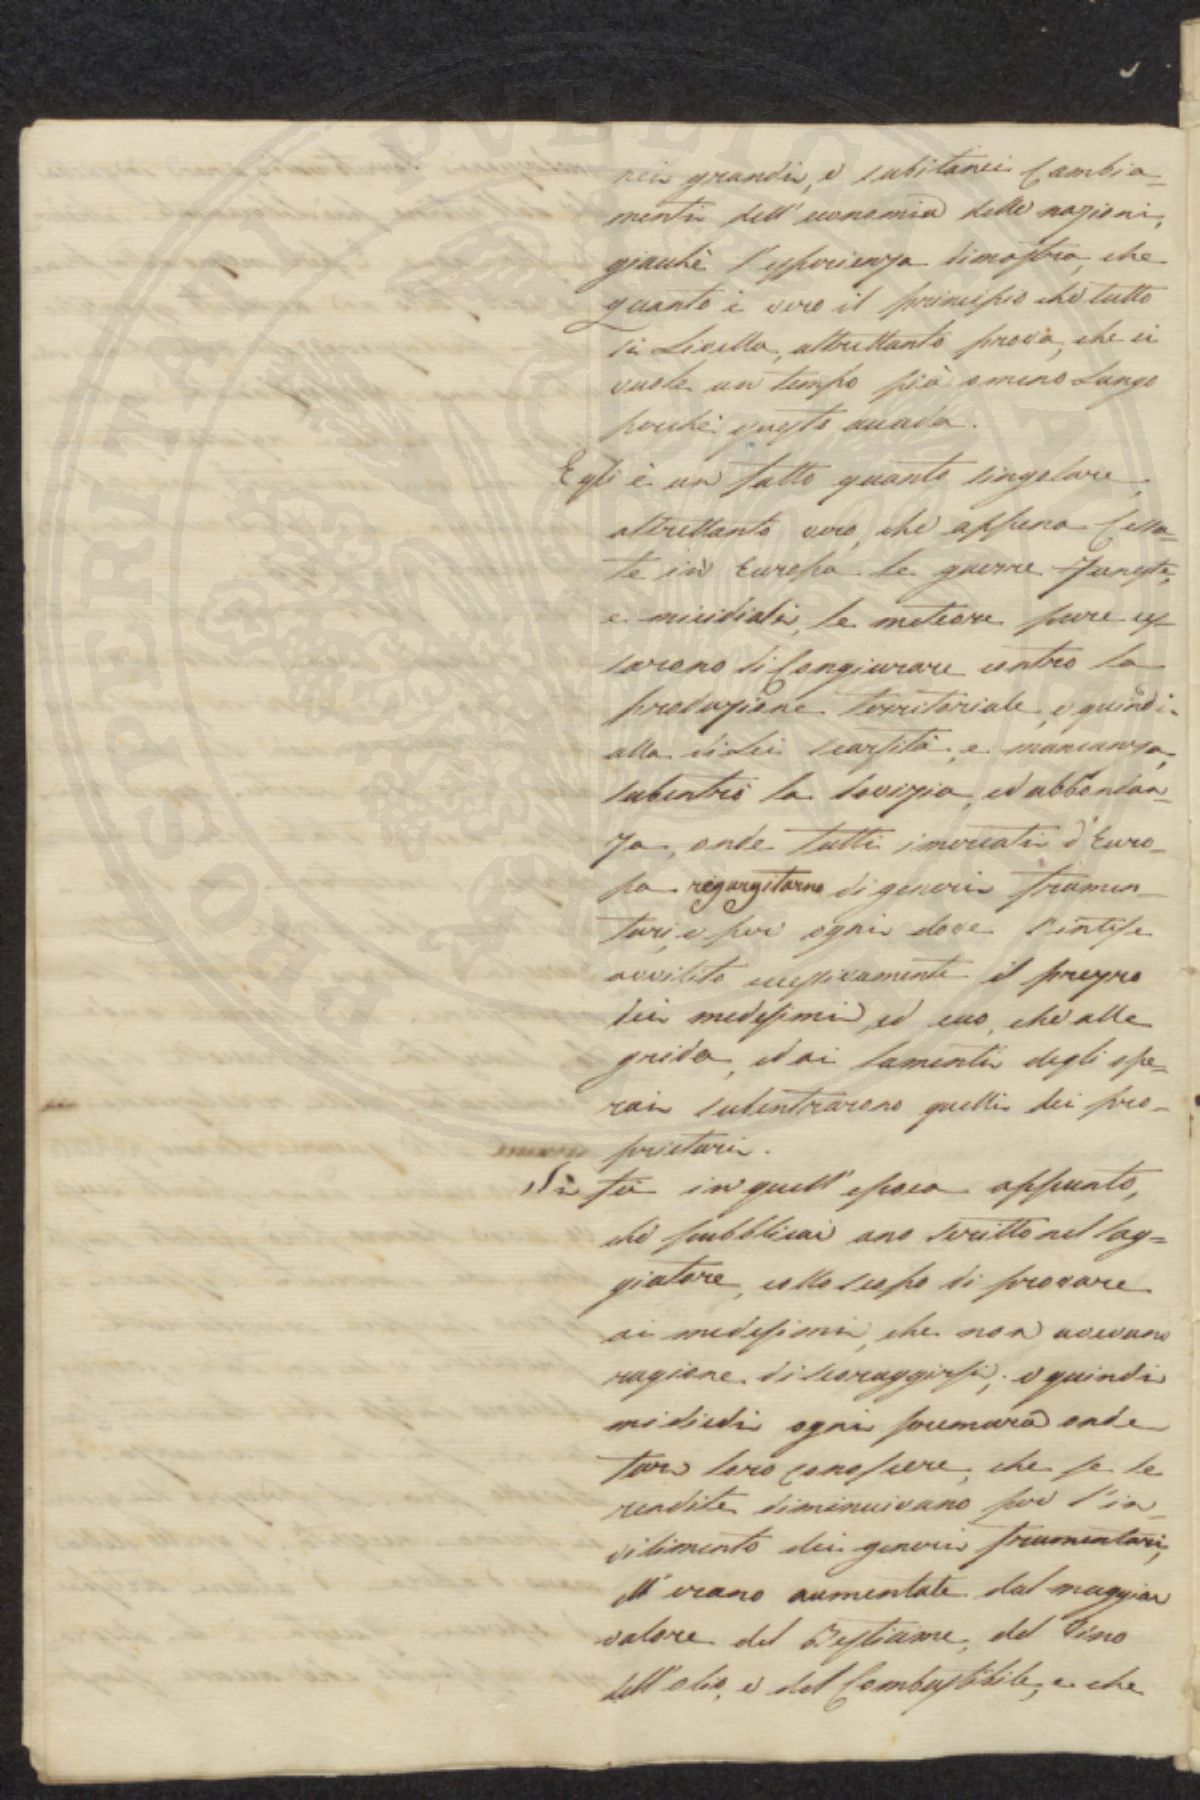 nei grandi, e subitanei Cambia=
menti dell' economia delle nazioni,
giacchè l'esperienza dimostra, che
quanto è vero il principio che tutto
si Livella, altrettanto prova, che ci
vuole un tempo più o meno Lungo
perchè questo accada.
Egli è un fatto quanto singolare,
altrettanto vero, che appena Cessa=
te in Europa le guerre Funeste,
e micidiali, le meteore pure ces
sarono di Congiurare contro la
produzione territoriale, e quindi
alla di Lei scarsità, e mancanza,
subentrò la dovizia, ed abbondan=
za, onde tutti i mercati d'Euro=
pa rigurgitarno di generi frumen=
tari, e per ogni dove s'intese
avvilito eccessivamente il prezzo
dei medesimi, ed ecco, che alle
grida, ed ai lamenti degli ope=
rai subentrarono quelli dei pro=
prietari.
Si fù in quell' epoca appunto,
che pubblicai uno scritto nel Sag=
giatore, collo scopo di provare
ai medesimi, che non avevano
ragione di scoraggirsi, e quindi
mi diedi ogni premura onde
far loro conoscere, che se le
rendite diminuivano per l'in=
vilimento dei generi frumentari,
s'erano aumentate dal maggior
valore del Bestiame, del Vino
dell'olio, e del Combustibile, e che